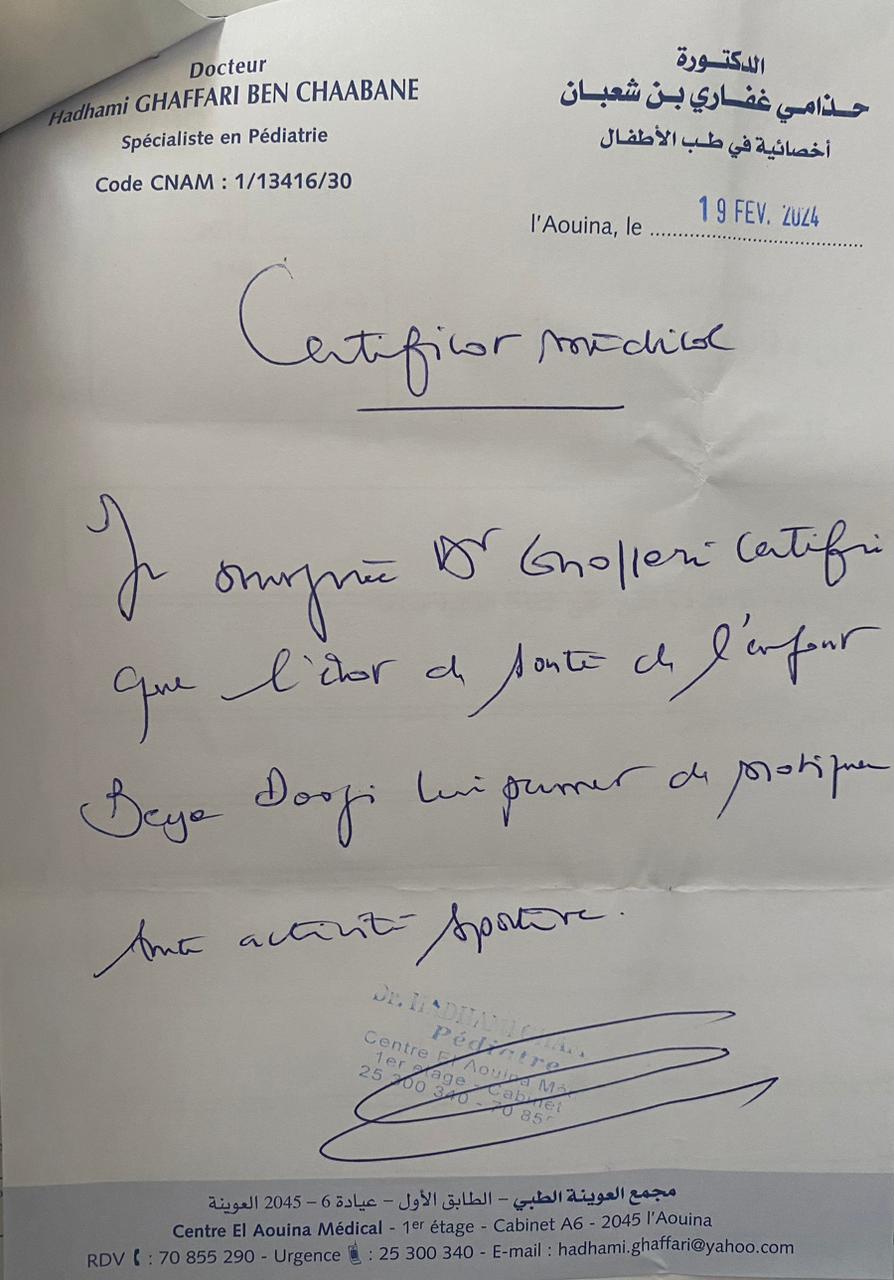 Docteur
Hadhami GHAFFARI BEN CHAABANE
Spécialiste en Pédiatrie
Code CNAM : 1/13416/30
الدكتورة
حذامي غفاري بن شعبان
أخصائية في طب الأطفال
l'Aouina, le 19 FEV. 2024
Certificat médical
Je soussignée Dr Ghaffari Certifie
que l'état de santé de l'enfant
Beya lui permet de pratiquer
toute activité sportive.
Dr. HADHAMI
Pédiatre
Centre El Aouina Méd
1er etage - Cabinet
25 300 340 - 70 855
مجمع العوينة الطبي – الطابق الأول – عيادة 6 – 2045 العوينة
Centre El Aouina Médical - 1er étage - Cabinet A6 - 2045 l'Aouina
RDV : 70 855 290 - Urgence : 25 300 340 - E-mail : hadhami.ghaffari@yahoo.com